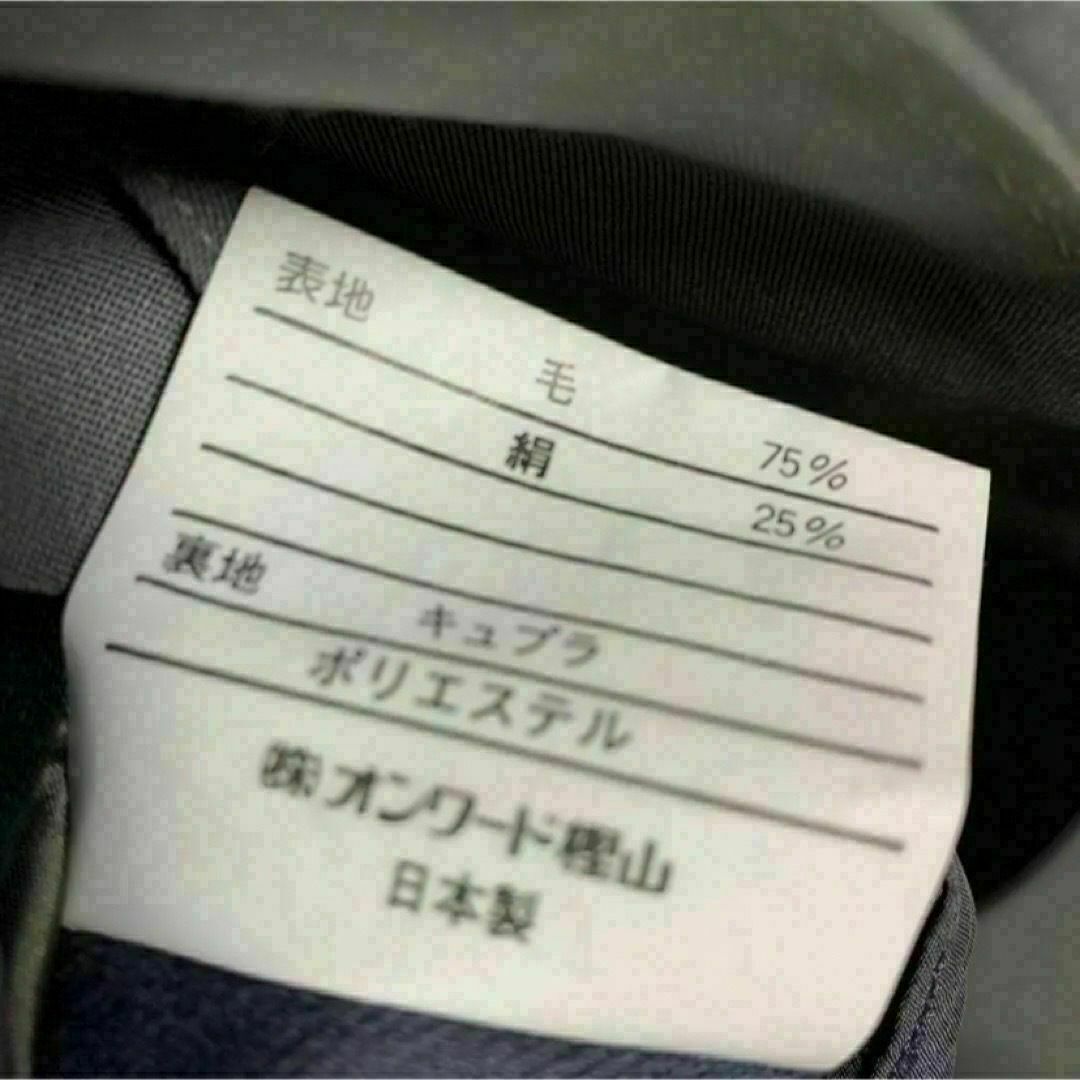 表地
毛 75%
絹 25%
裏地 キュプラ
ポリエステル
㈱オンワード樫山
日本製